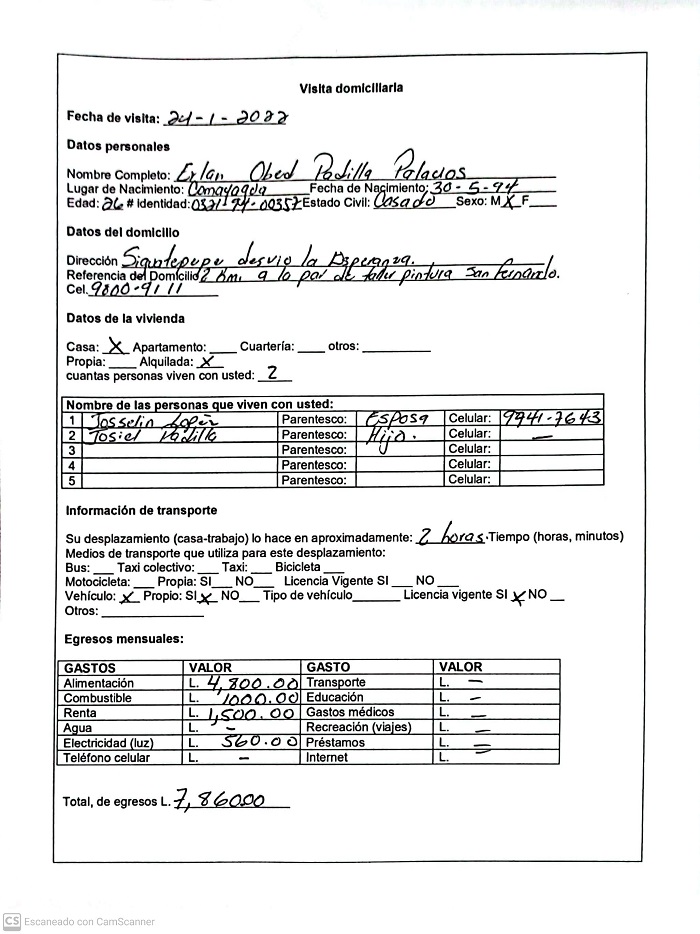 Visita domiciliaria
Fecha de visita: 24-1-2022
Datos personales
Nombre Completo: Erlan Obed Padilla Palacios
Lugar de Nacimiento: Comayagua Fecha de Nacimiento: 30-5-94
Edad: 26 # Identidad: 0321-94-00357 Estado Civil: Casado Sexo: M X F___
Datos del domicilio
Dirección Siguatepeque desvio la Esperanza.
Referencia del Domicilio 2 Km. a lo par de taller pintura San Fernando.
Cel. 9800-9111
Datos de la vivienda
Casa: X Apartamento: ____ Cuartería: ____ otros: __________
Propia: ____ Alquilada: X
cuantas personas viven con usted: 2
Nombre de las personas que viven con usted:
1 Josselin Lopez Parentesco: Esposa Celular: 9941-7643
2 Josiel Padilla Parentesco: Hijo. Celular: —
3 Parentesco: Celular:
4 Parentesco: Celular:
5 Parentesco: Celular:
Información de transporte
Su desplazamiento (casa-trabajo) lo hace en aproximadamente: 2 horas. Tiempo (horas, minutos)
Medios de transporte que utiliza para este desplazamiento:
Bus: ___ Taxi colectivo: ___ Taxi: ___ Bicicleta ___
Motocicleta: ___ Propia: SI___ NO___ Licencia Vigente SI ___ NO ___
Vehículo: X Propio: SI X NO___ Tipo de vehículo_______ Licencia vigente SI X NO __
Otros: _______________
Egresos mensuales:
GASTOS VALOR GASTO VALOR
Alimentación L. 4,800.00 Transporte L. —
Combustible L. 1000.00 Educación L. —
Renta L. 1,500.00 Gastos médicos L. —
Agua L. — Recreación (viajes) L. —
Electricidad (luz) L. 560.00 Préstamos L. —
Teléfono celular L. — Internet L. —
Total, de egresos L. 7,860.00
CS Escaneado con CamScanner